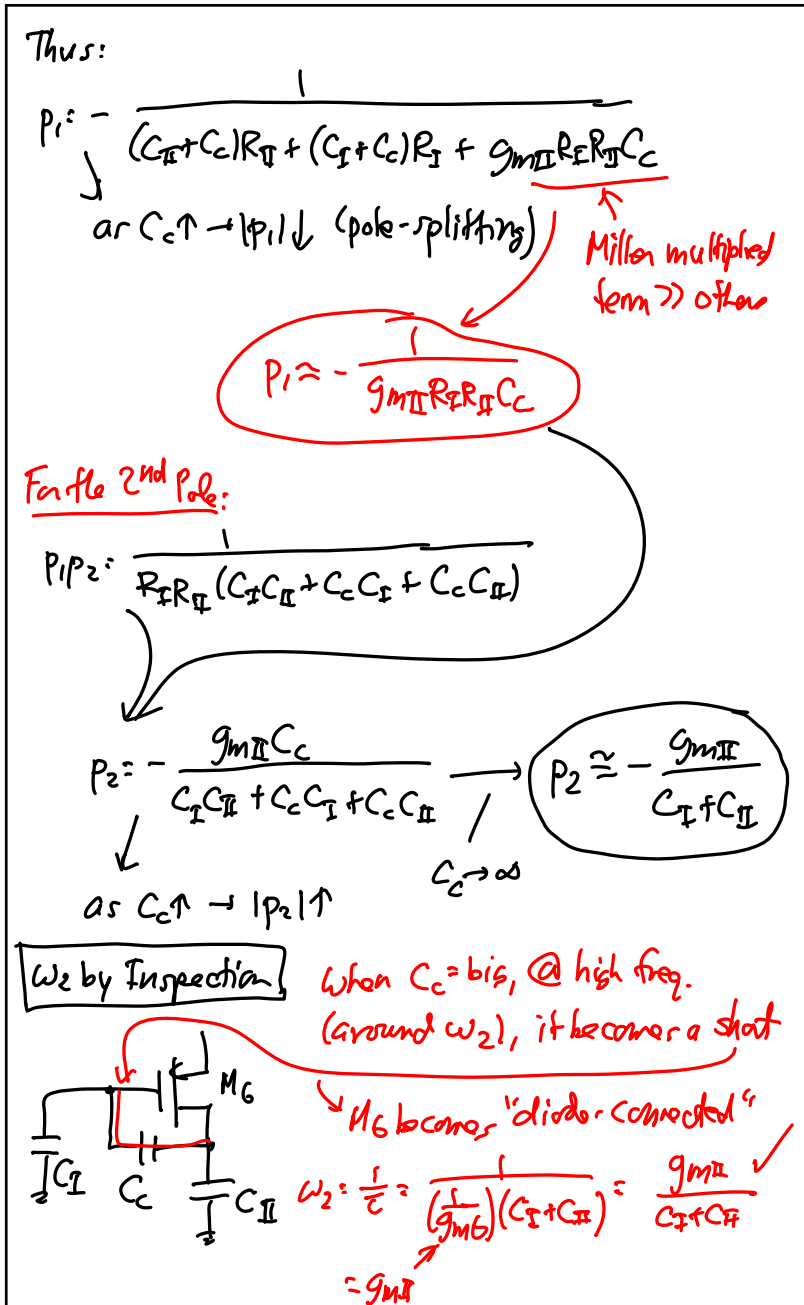 Thus:
p₁ = - 1 / ((C_II + C_c)R_II + (C_I + C_c)R_I + g_mII R_I R_II C_c)
as C_c↑ → |p₁|↓ (pole-splitting)
Miller multiplied
term >> others
p₁ ≈ - 1 / (g_mII R_I R_II C_c)
For the 2nd Pole:
p₁p₂ = 1 / (R_I R_II (C_I C_II + C_c C_I + C_c C_II))
p₂ = - g_mII C_c / (C_I C_II + C_c C_I + C_c C_II) → p₂ ≅ - g_mII / (C_I + C_II)
C_c → ∞
as C_c↑ → |p₂|↑
ω₂ by Inspection
when C_c = big, @ high freq.
(around ω₂), it becomes a short
M6
M6 becomes "diode-connected"
C_I
C_c
C_II
ω₂ = 1/τ = 1 / ((1/g_m6)(C_I + C_II)) = g_mII / (C_I + C_II) ✓
= g_mII